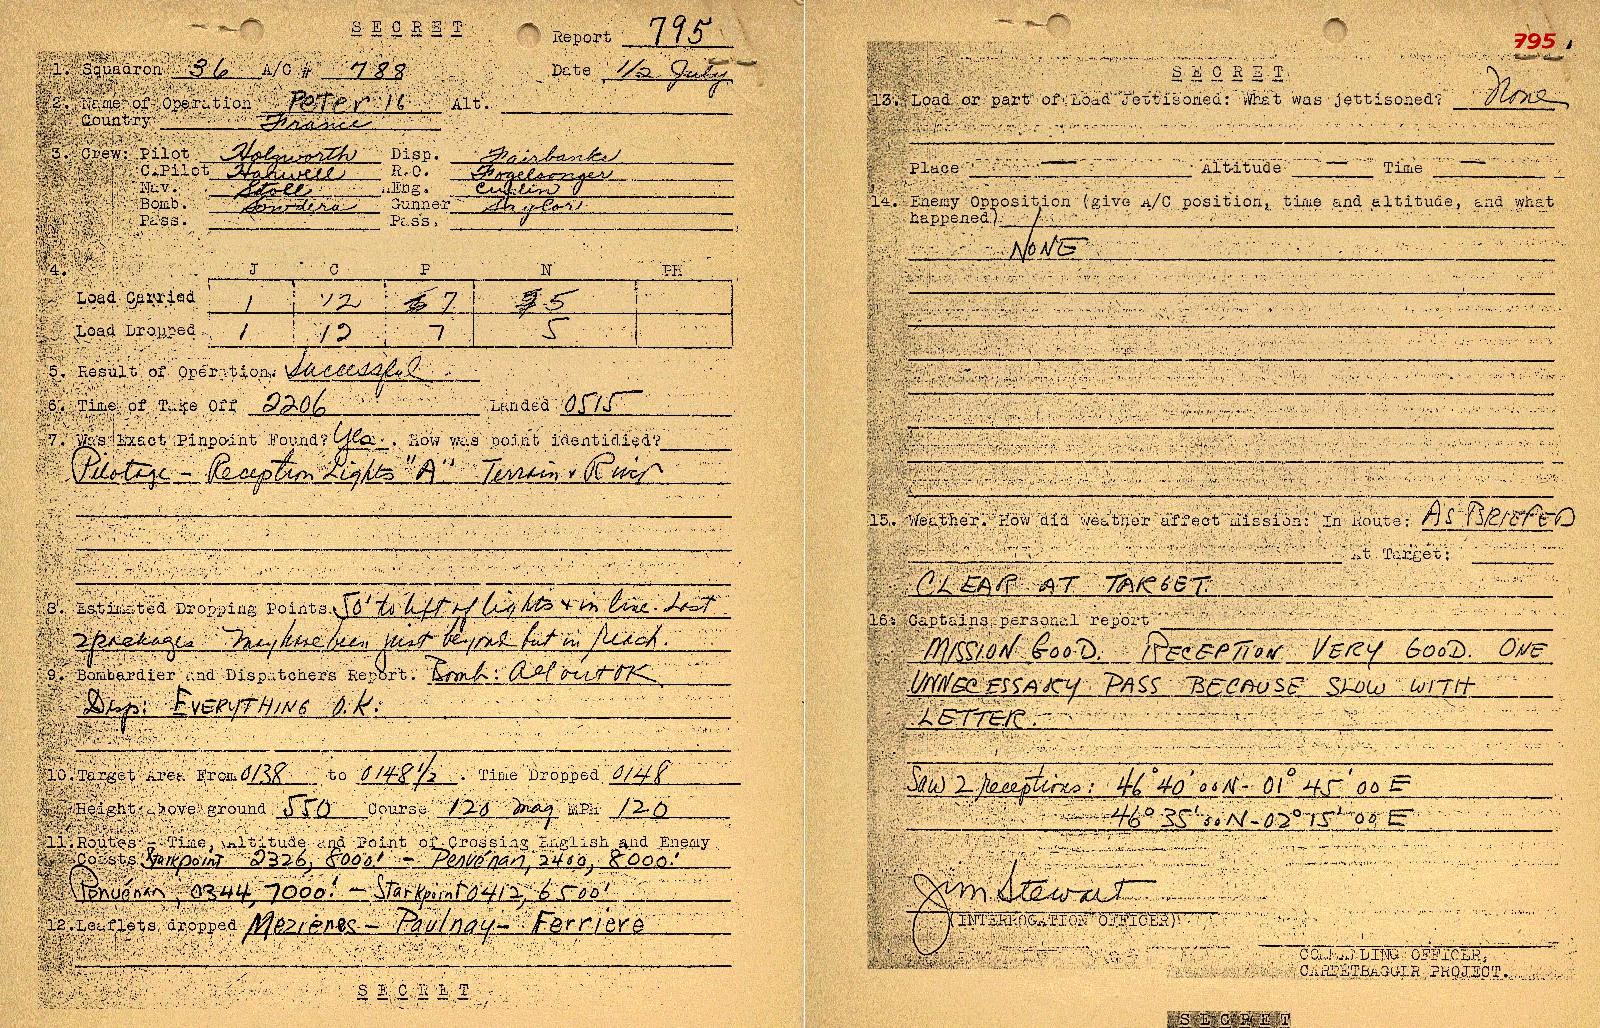 SECRET
Report 795
1. Squadron 36 A/C # 788 Date 1/2 July
2. Name of Operation Peter 16 Alt.
Country France
3. Crew: Pilot Holzworth Disp. Fairbanks
C.Pilot Hanwell R.C. Fogelsonger
Nav. Stoll Eng. Cullin
Bomb. Sowders Gunner Saylor
Pass. Pass.
4. J C P N PH
Load Carried 1 12 7 5
Load Dropped 1 12 7 5
5. Result of Operation. Successful
6. Time of Take Off 2206 Landed 0515
7. Was Exact Pinpoint Found? Yes. How was point identidied?
Pilotage - Reception Lights "A" Terrain & River
8. Estimated Dropping Points. 50' to left of lights & in line. Last
2 packages may have been just beyond but in reach.
9. Bombardier and Dispatchers Report. Bomb: All out OK
Disp: EVERYTHING O.K.
10. Target Area From 0138 to 0148 1/2. Time Dropped 0148
Height above ground 550 Course 120 mag MPH 120
11. Routes - Time, Altitude and Point of Crossing English and Enemy
Coasts Startpoint 2326, 8000' - Penvénan, 2400, 8000'
Penvénan, 0344, 7000' - Startpoint 0412, 6500'
12. Leaflets dropped Mezieres - Paulnay - Ferriere
SECRET
795
SECRET
13. Load or part of Load Jettisoned: What was jettisoned? None
Place — Altitude — Time —
14. Enemy Opposition (give A/C position, time and altitude, and what
happened)
NONE
15. Weather. How did weather affect mission: In Route: AS BRIEFED
At Target:
CLEAR AT TARGET.
16. Captains personal report
MISSION GOOD. RECEPTION VERY GOOD. ONE
UNNECESSARY PASS BECAUSE SLOW WITH
LETTER.
Saw 2 receptions: 46° 40' 00 N - 01° 45' 00 E
46° 35' 00 N - 02° 15' 00 E
Jim Stewart
(INTERROGATION OFFICER)
COMMANDING OFFICER,
CARPETBAGGER PROJECT.
SECRET